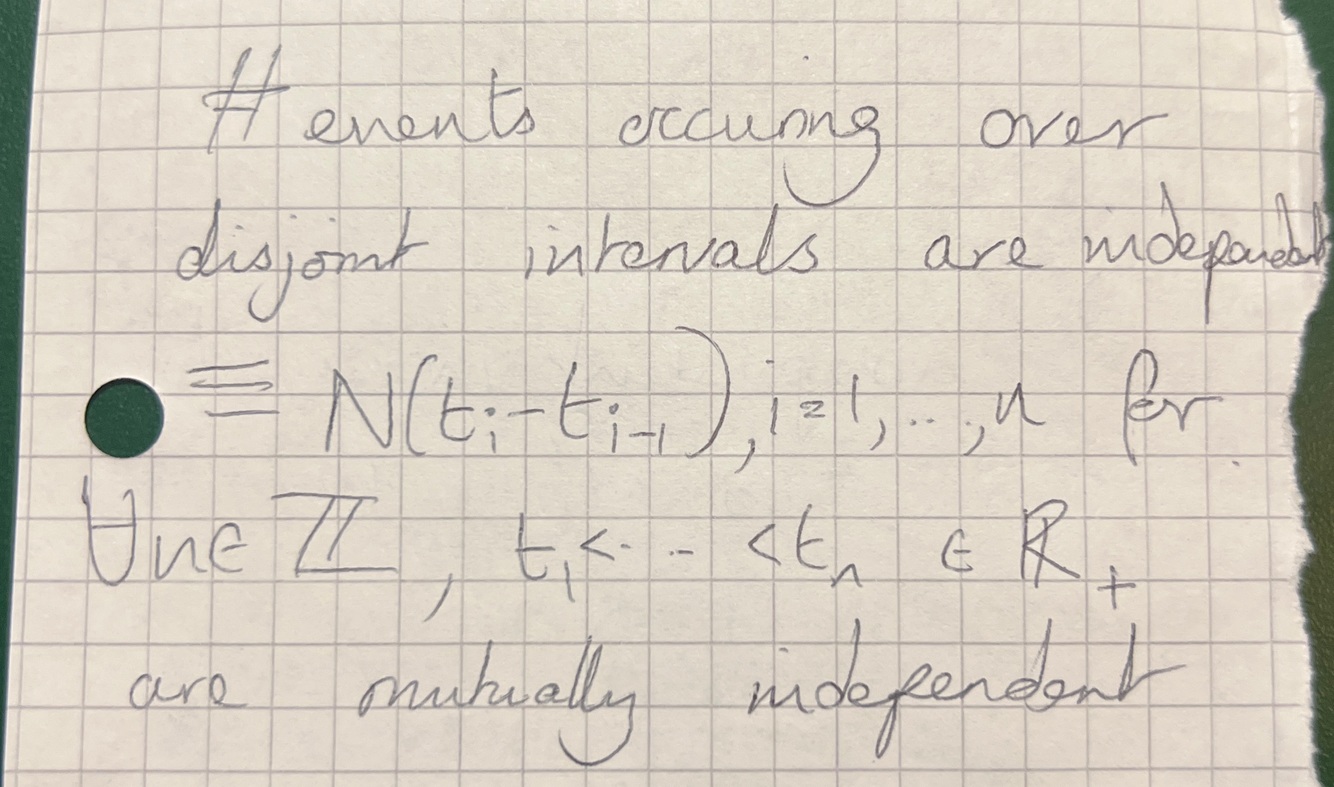 # events occuring over
disjoint intervals are independent
≡ N(tᵢ-tᵢ₋₁), i=1,...,n for
∀n∈ℤ, t₁<--<tₙ ∈ ℝ₊
are mutually independent